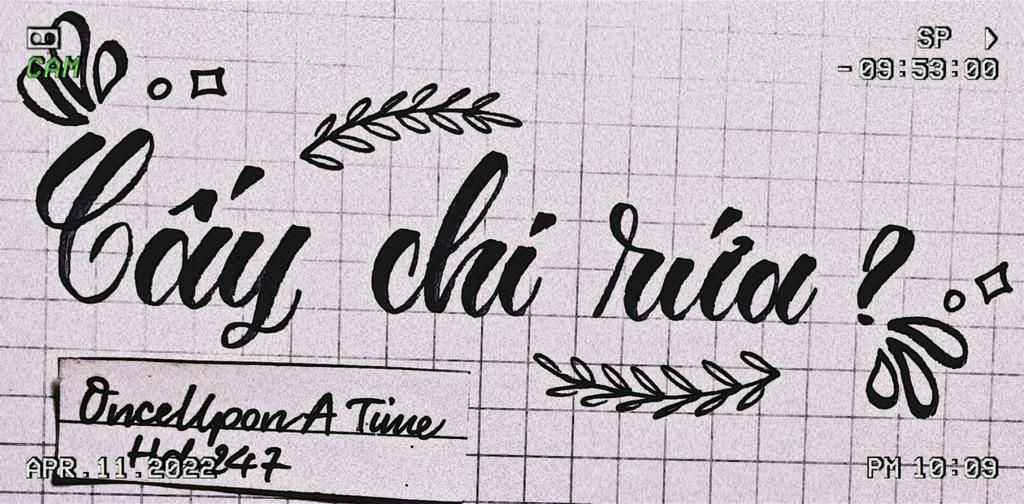 SP
CAM
-09:53:00
Cấy chi rứa ?
OnceUpon A Time
247
APR.11.2022
PM 10:09